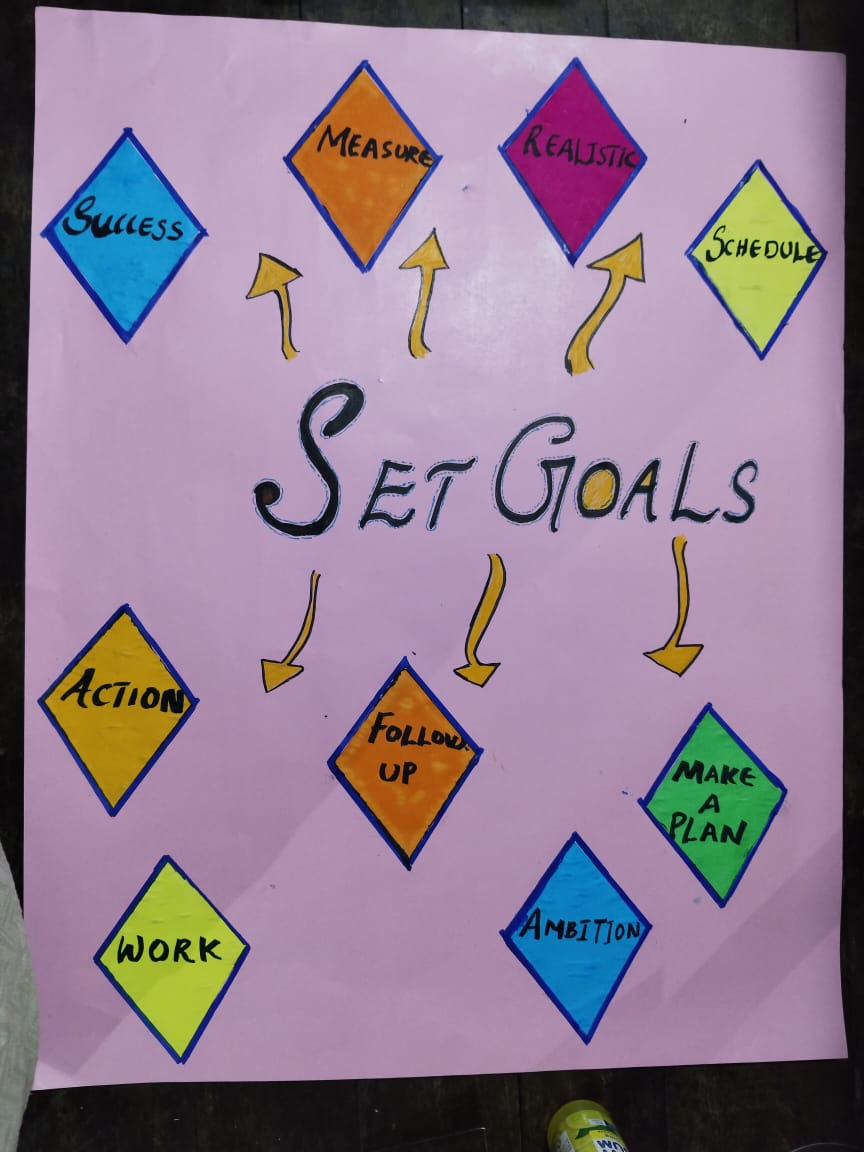 MEASURE
REALISTIC
SUCCESS
SCHEDULE
SET GOALS
ACTION
FOLLOW
UP
MAKE
A
PLAN
WORK
AMBITION